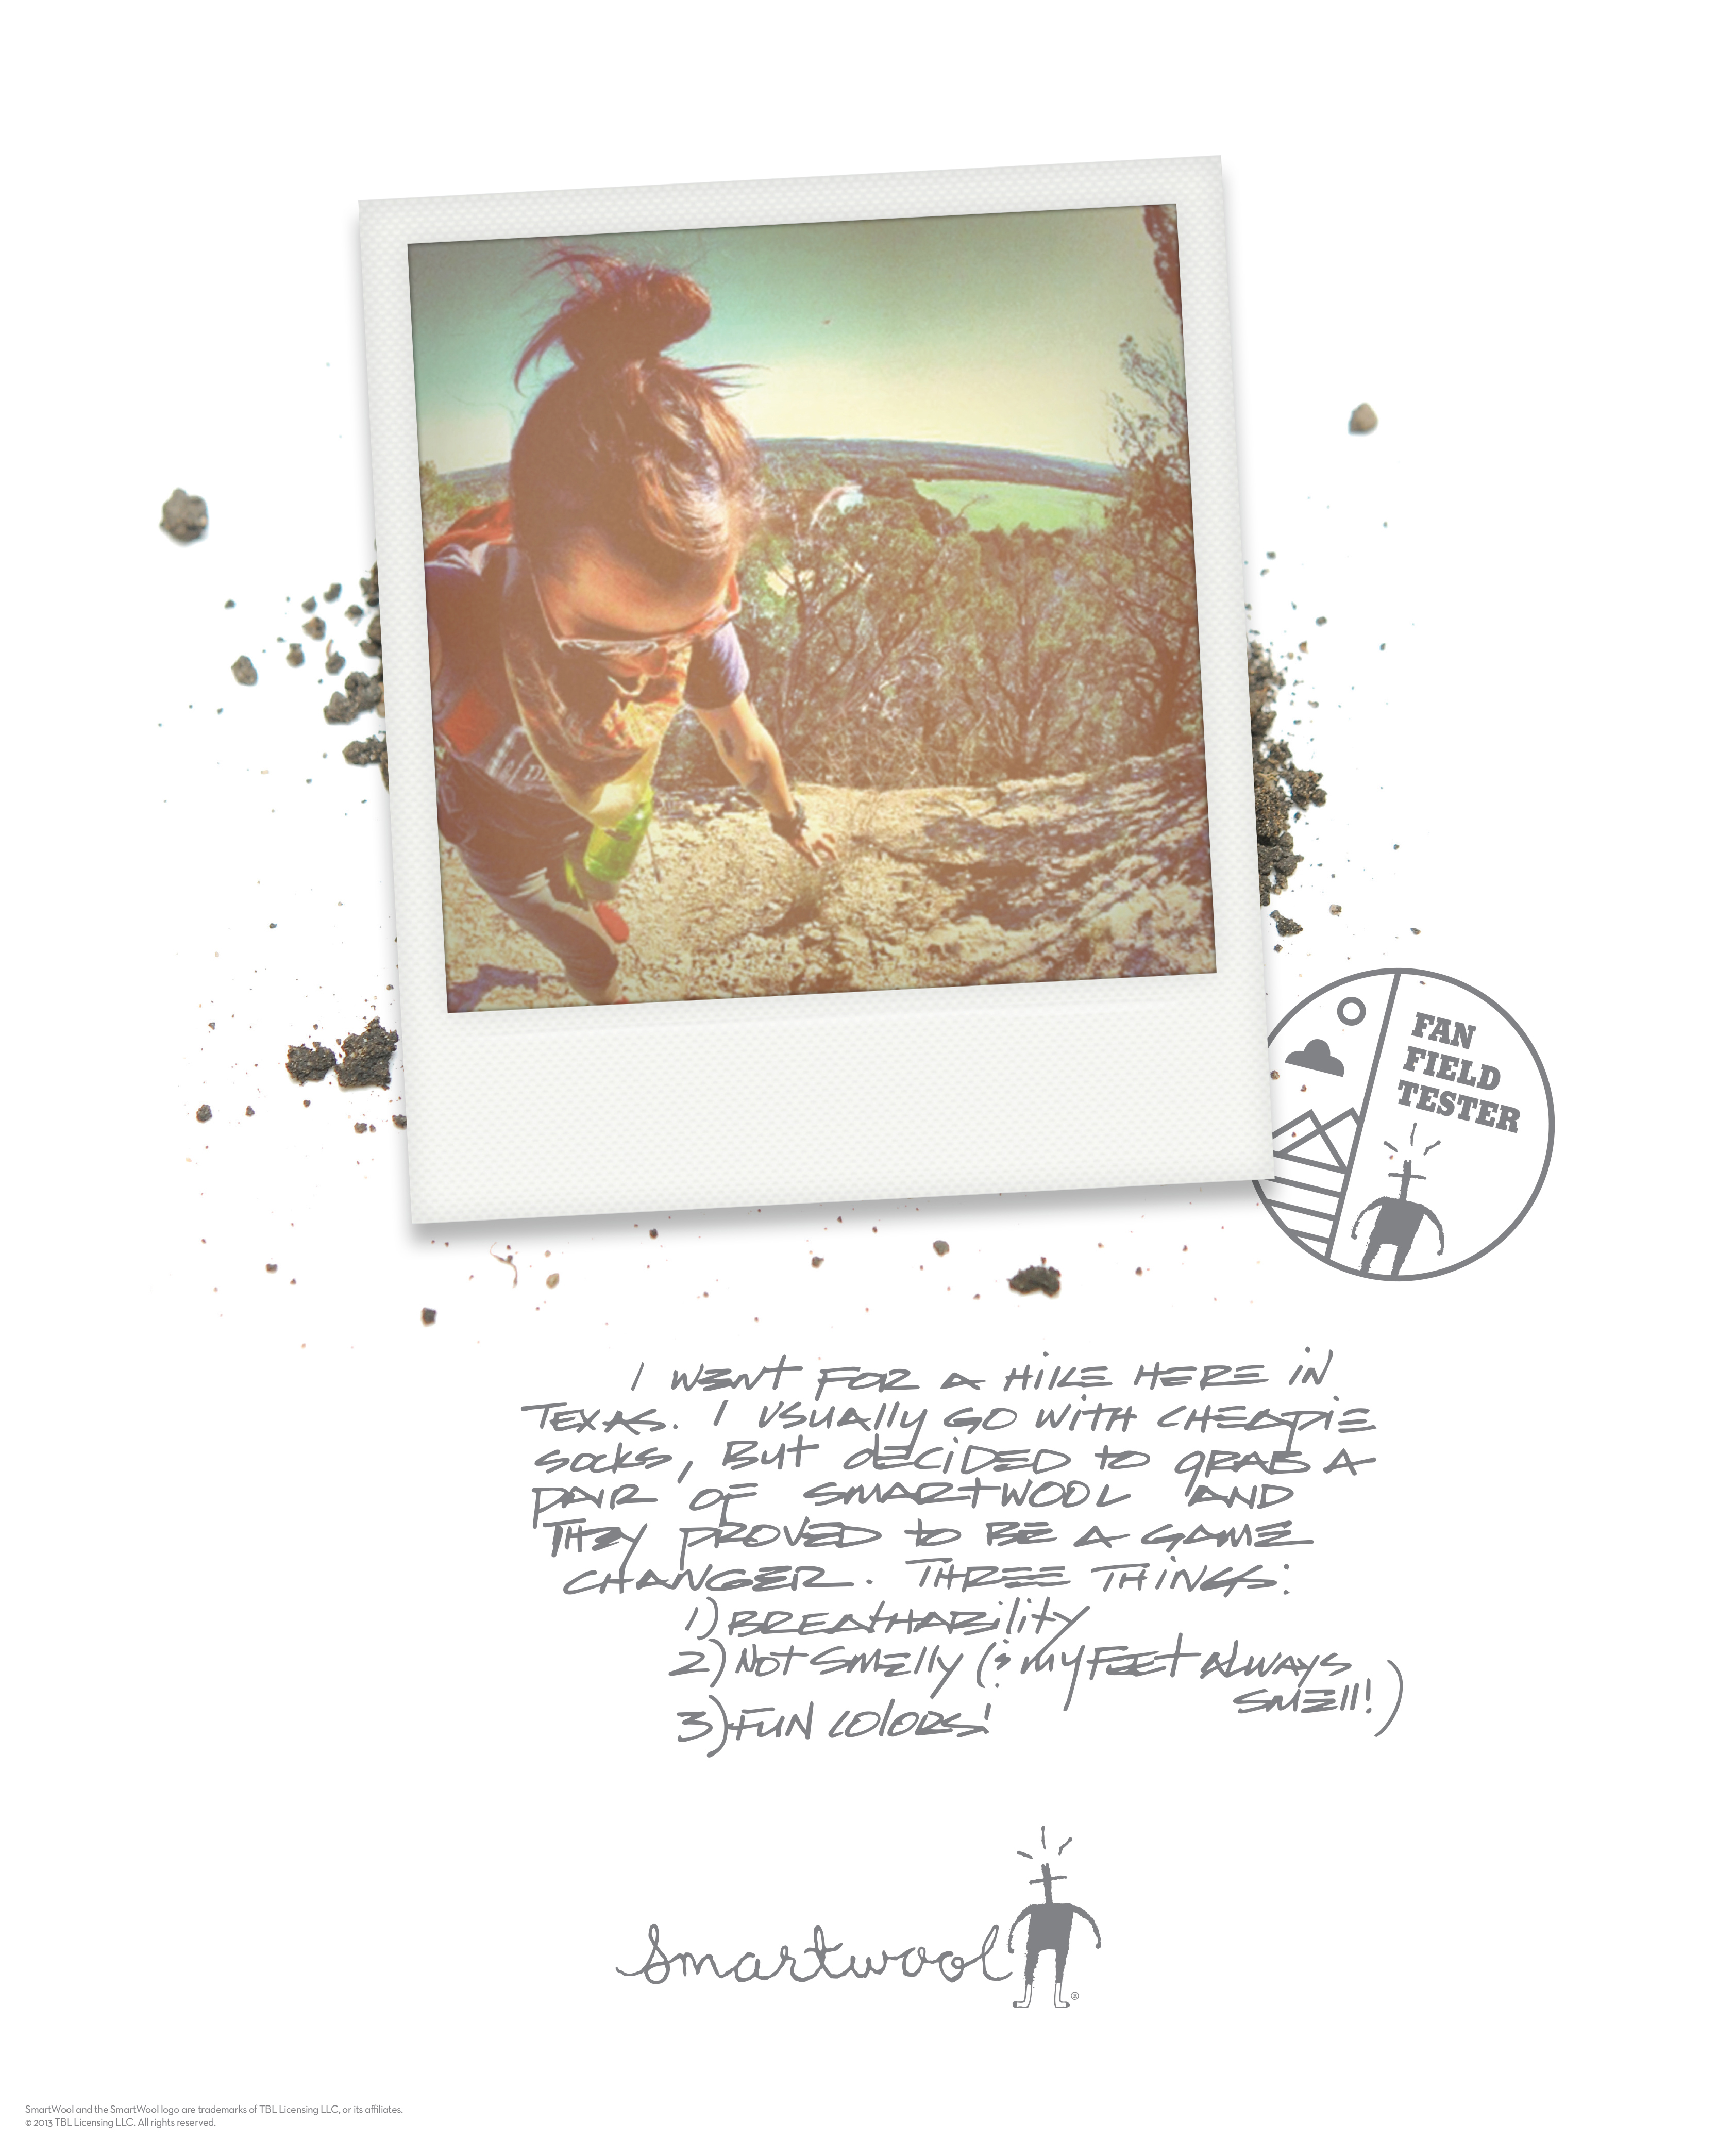 FAN
FIELD
TESTER
I WENT FOR A HIKE HERE IN
TEXAS. I USUALLY GO WITH CHEAPIE
SOCKS, BUT DECIDED TO GRAB A
PAIR OF SMARTWOOL AND
THEY PROVED TO BE A GAME
CHANGER. THREE THINGS:
1) BREATHABILITY
2) NOT SMELLY (& MY FEET ALWAYS
SMELL!)
3) FUN COLORS!
Smartwool ®
SmartWool and the SmartWool logo are trademarks of TBL Licensing LLC, or its affiliates.
© 2013 TBL Licensing LLC. All rights reserved.